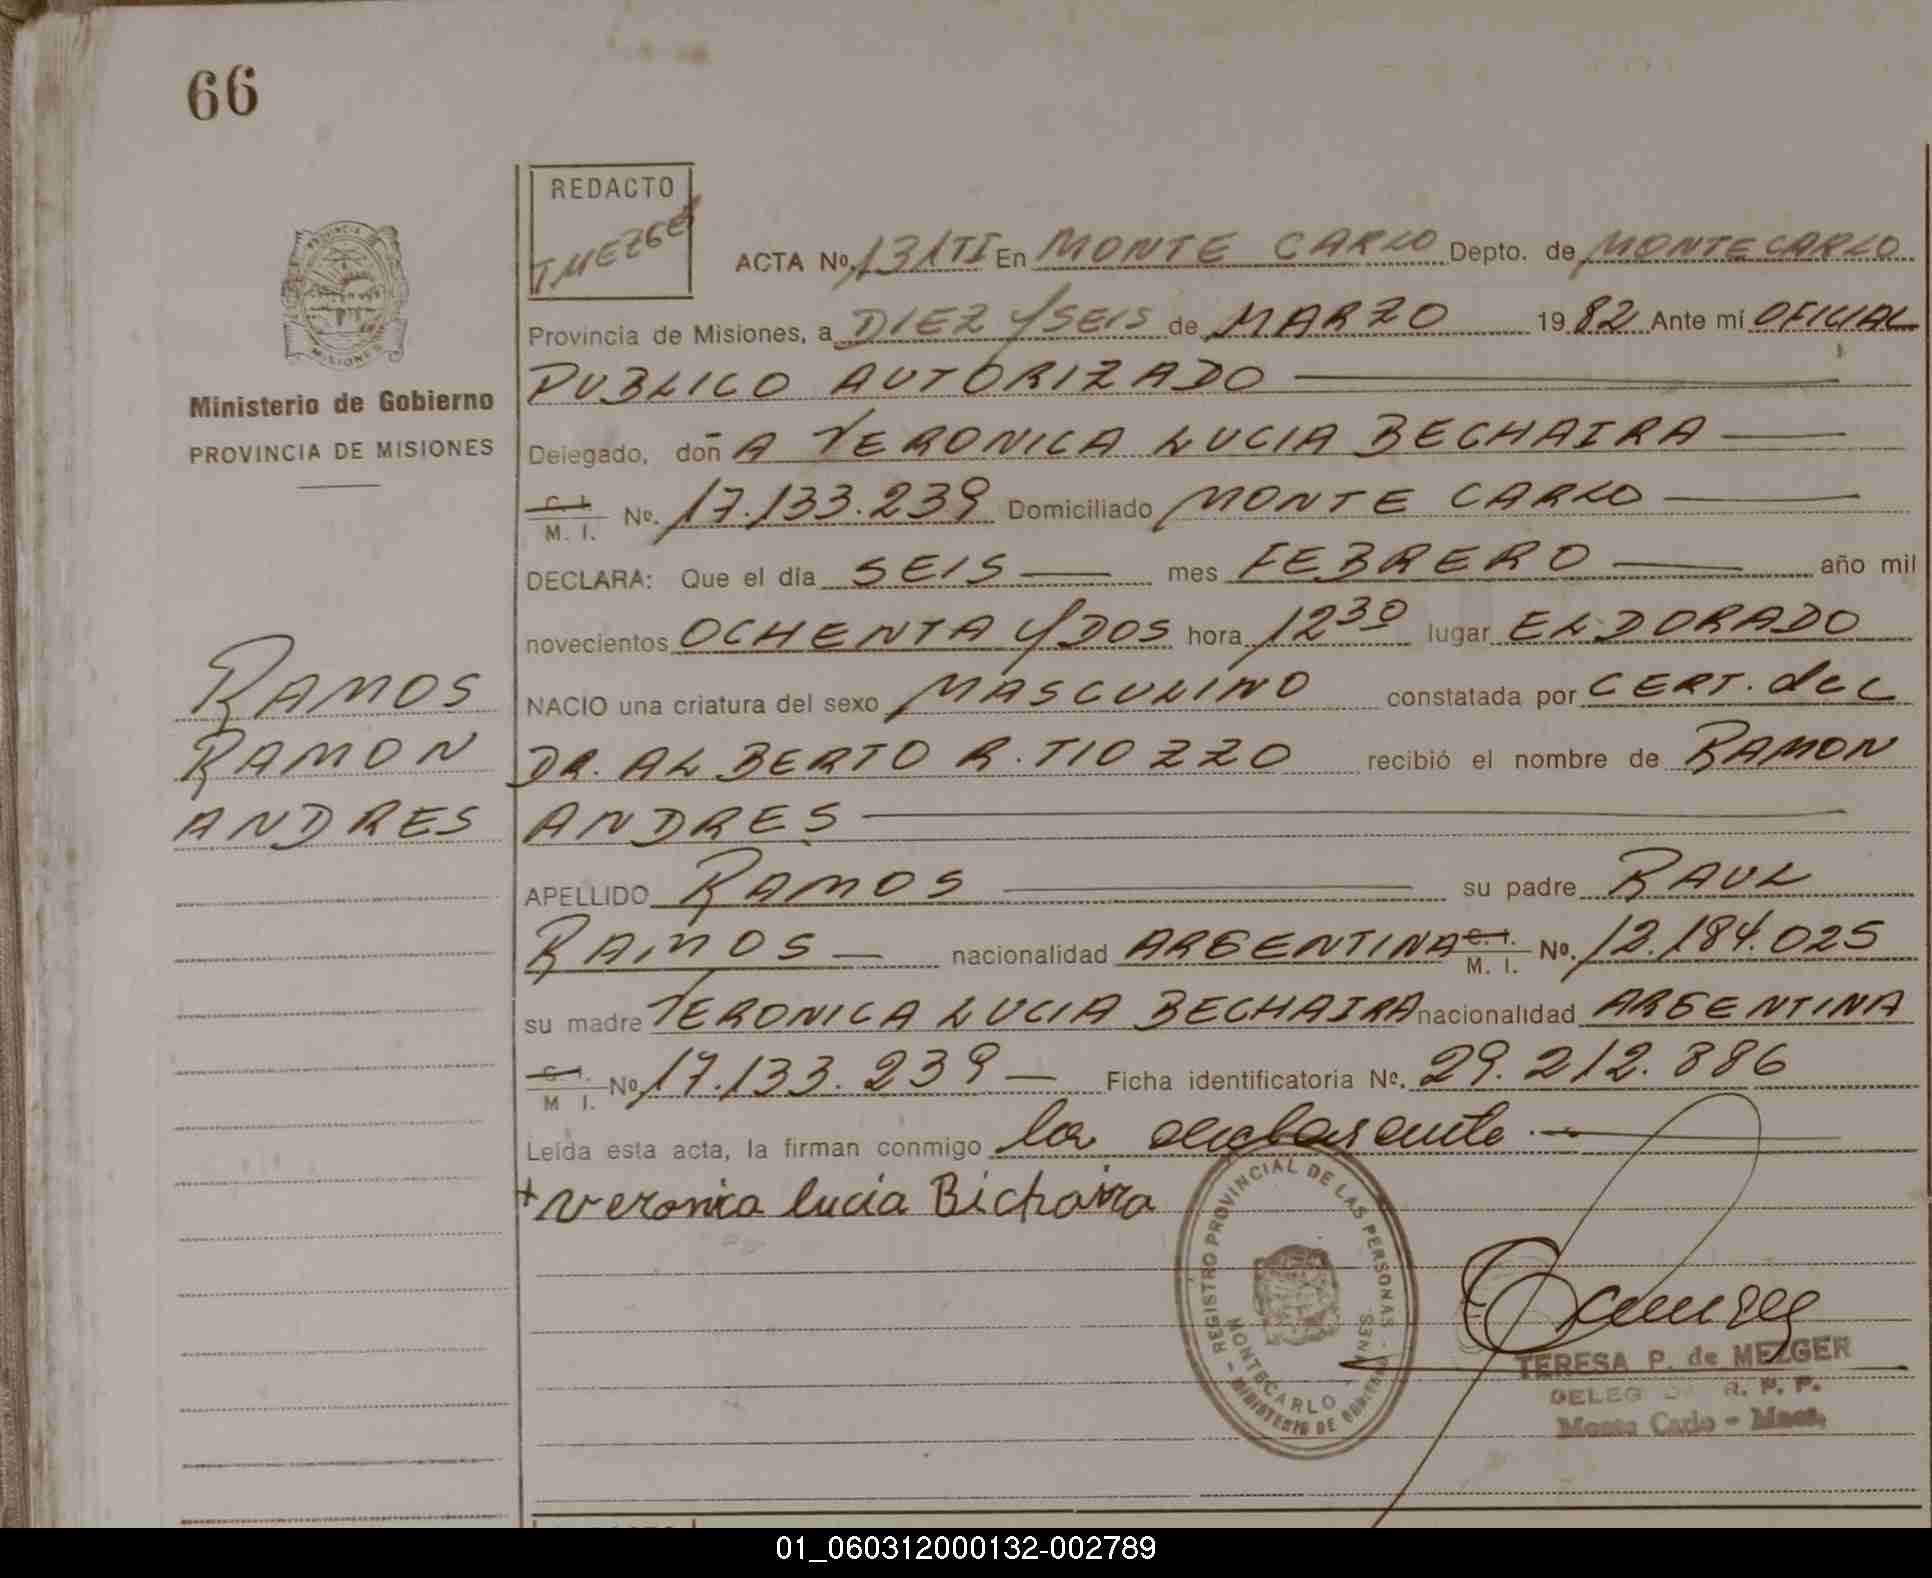 66
REDACTO
T MEZGER
ACTA Nº 131TI En MONTE CARLO Depto. de MONTECARLO
Provincia de Misiones, a DIEZ Y SEIS de MARZO 1982 Ante mí OFICIAL
PUBLICO AUTORIZADO
Ministerio de Gobierno
PROVINCIA DE MISIONES
Delegado, doñA VERONICA LUCIA BECHAIRA
C. I. M. I. Nº. 17.133.239 Domiciliado MONTE CARLO
DECLARA: Que el día SEIS mes FEBRERO año mil
novecientos OCHENTA Y DOS hora 12 30 lugar ELDORADO
NACIO una criatura del sexo MASCULINO constatada por CERT. del
DR. ALBERTO R. TIOZZO recibió el nombre de RAMON
ANDRES
RAMOS
RAMON
ANDRES
APELLIDO RAMOS su padre RAUL
RAMOS nacionalidad ARGENTINA C. I. M. I. Nº. 12.184.025
su madre VERONICA LUCIA BECHAIRA nacionalidad ARGENTINA
C. I. M. I. Nº 17.133.239 Ficha identificatoria Nº. 29.212.886
Leída esta acta, la firman conmigo la declarante.
+ Veronica lucia Bichaira
REGISTRO PROVINCIAL DE LAS PERSONAS - MINISTERIO DE GOBIERNO -
MONTECARLO - MISIONES
TERESA P. de MEZGER
DELEG R. P. P.
Monte Carlo - Mnes.
01_060312000132-002789